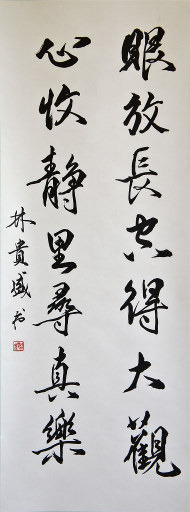 眼放長空得大觀
心收靜里尋真樂
林貴盛书